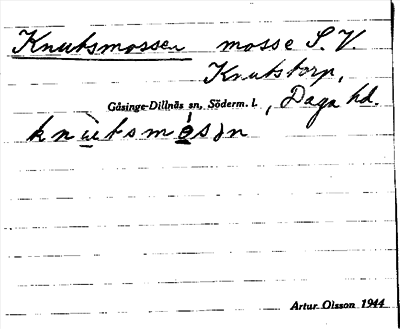 Knutsmossen mosse S.V.
Knutstorp,
Gåsinge-Dillnäs sn, Söderm. l., Daga hd.
Artur Olsson 1944